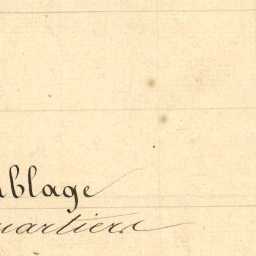 blage
uartiers